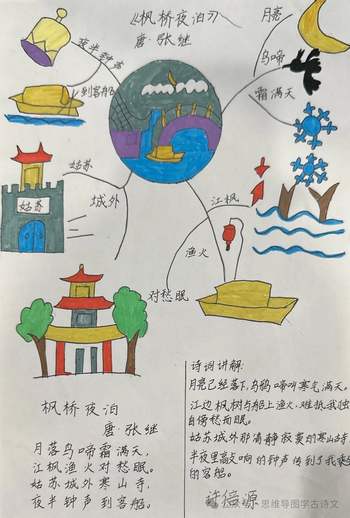 《枫桥夜泊》
唐·张继
月亮
乌啼
霜满天
夜半钟声
到客船
姑苏
城外
姑苏
江枫
渔火
对愁眠
枫桥夜泊
唐·张继
月落乌啼霜满天,
江枫渔火对愁眠。
姑苏城外寒山寺,
夜半钟声到客船。
诗词讲解:
月亮已经落下,乌鸦啼叫寒气满天。
江边枫树与船上渔火,难抵我独
自傍愁而眠。
姑苏城外那清静寂寞的寒山寺
半夜里敲响的钟声传到了我乘坐
的客船。
思维导图学古诗文